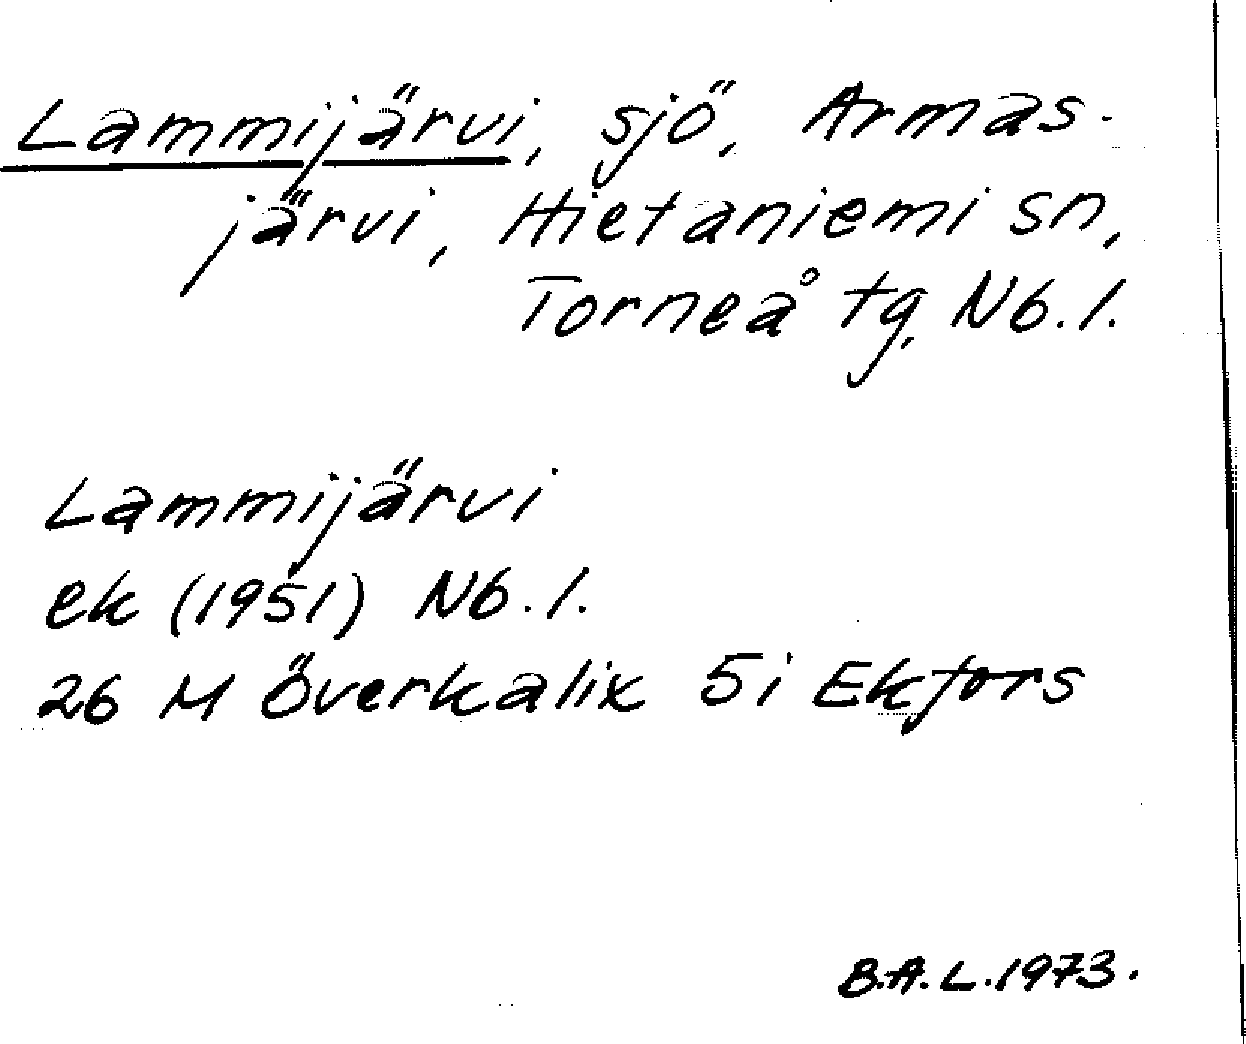 Lammijärvi, sjö, Armas-
järvi, Hietaniemi sn,
Torneå tg, Nb. l.
Lammijärvi
ek (1951) Nb. l.
26 M Överkalix 5i Ekfors
B.A.L. 1973.